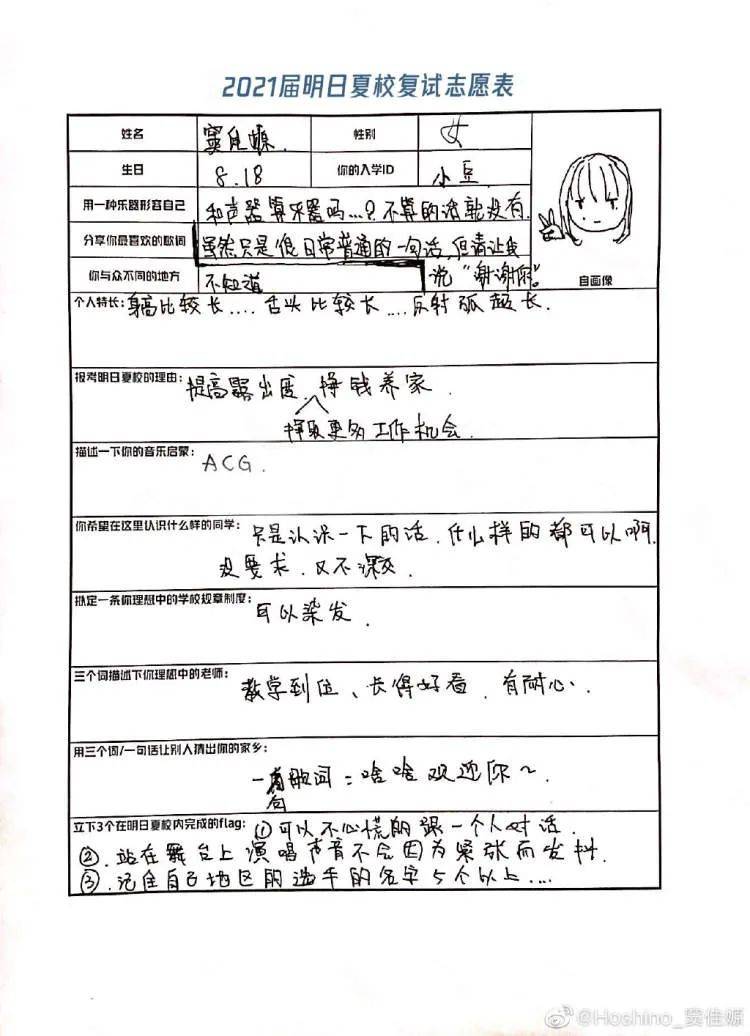 2021届明日夏校复试志愿表
姓名 窦佳嫄 性别 女
生日 8.18 你的入学ID 小豆
用一种乐器形容自己 和声器算乐器吗...?不算的话就没有.
分享你最喜欢的歌词 虽然只是很日常普通的一句话,但请让我
说“谢谢你”。
你与众不同的地方 不知道
自画像
个人特长: 身高比较长....舌头比较长....反射弧超长.
报考明日夏校的理由: 提高露出度、挣钱养家.
挣取更多工作机会.
描述一下你的音乐启蒙: ACG.
你希望在这里认识什么样的同学: 只是认识一下的话,什么样的都可以啊.
没要求.又不深交.
拟定一条你理想中的学校规章制度: 可以染发.
三个词描述下你理想中的老师: 教学到位、长得好看、有耐心.
用三个词/一句话让别人猜出你的家乡:
一句歌词:啥啥欢迎你~
立下3个在明日夏校内完成的flag: ①可以不心慌的跟一个人对话.
②.站在舞台上演唱声音不会因为紧张而发抖.
③.记住自己地区的选手的名字5个以上....
@Hoshino_窦佳嫄